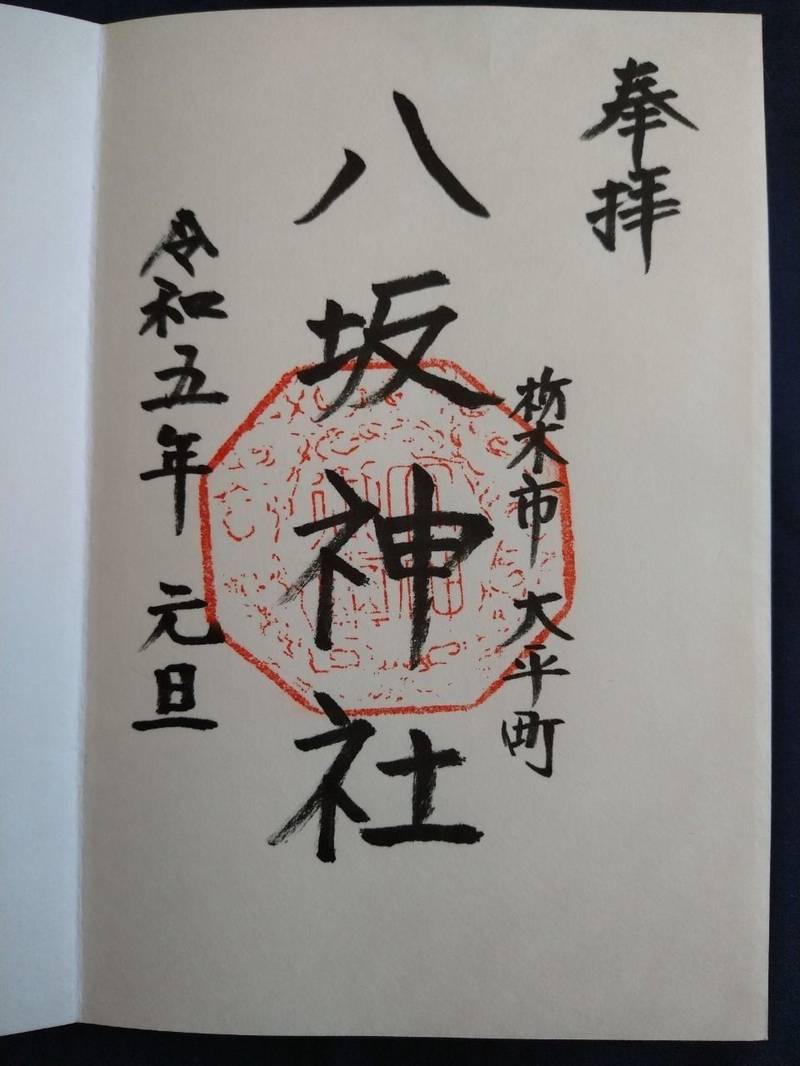 奉拝
栃木市 大平町
八坂神社
令和五年 元旦